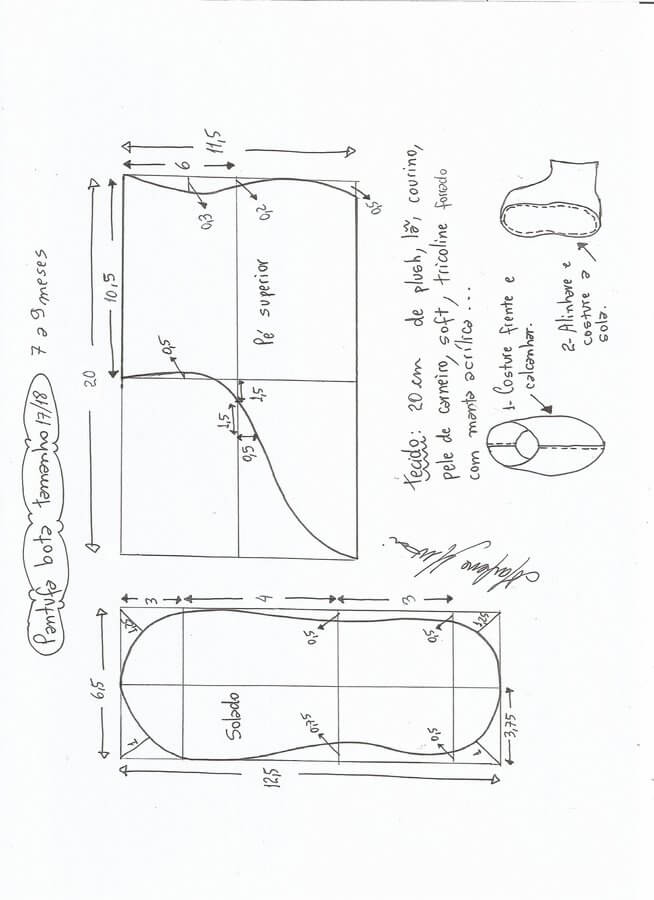 Pantufa bota tamanho 17/18 7 a 9 meses
20
10,5
6
11,5
0,3
0,2
0,5
Pé superior
0,5
1,5
1,5
0,5
6,5
12,5
3
4
3
Solado
1
0,5
0,5
0,75
0,5
1
1,25
3,75
Marlene Mukai
tecido: 20 cm de plush, lã, courino,
pele de carneiro, soft, tricoline forrado
com manta acrílica...
1- Costure frente e
calcanhar.
2- Alinhave e
costure a
sola.